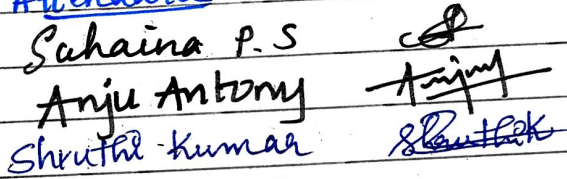 Suhaina P.S
Anju Antony Anjuy
Shruthi Kumar Shruthik